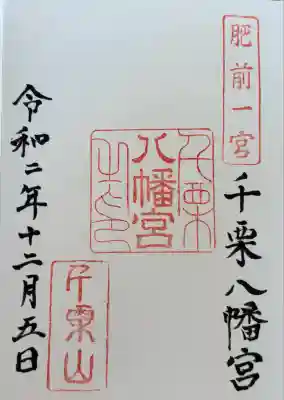 肥前一宮
千栗八幡宮
八幡宮
千栗山
令和二年十二月五日